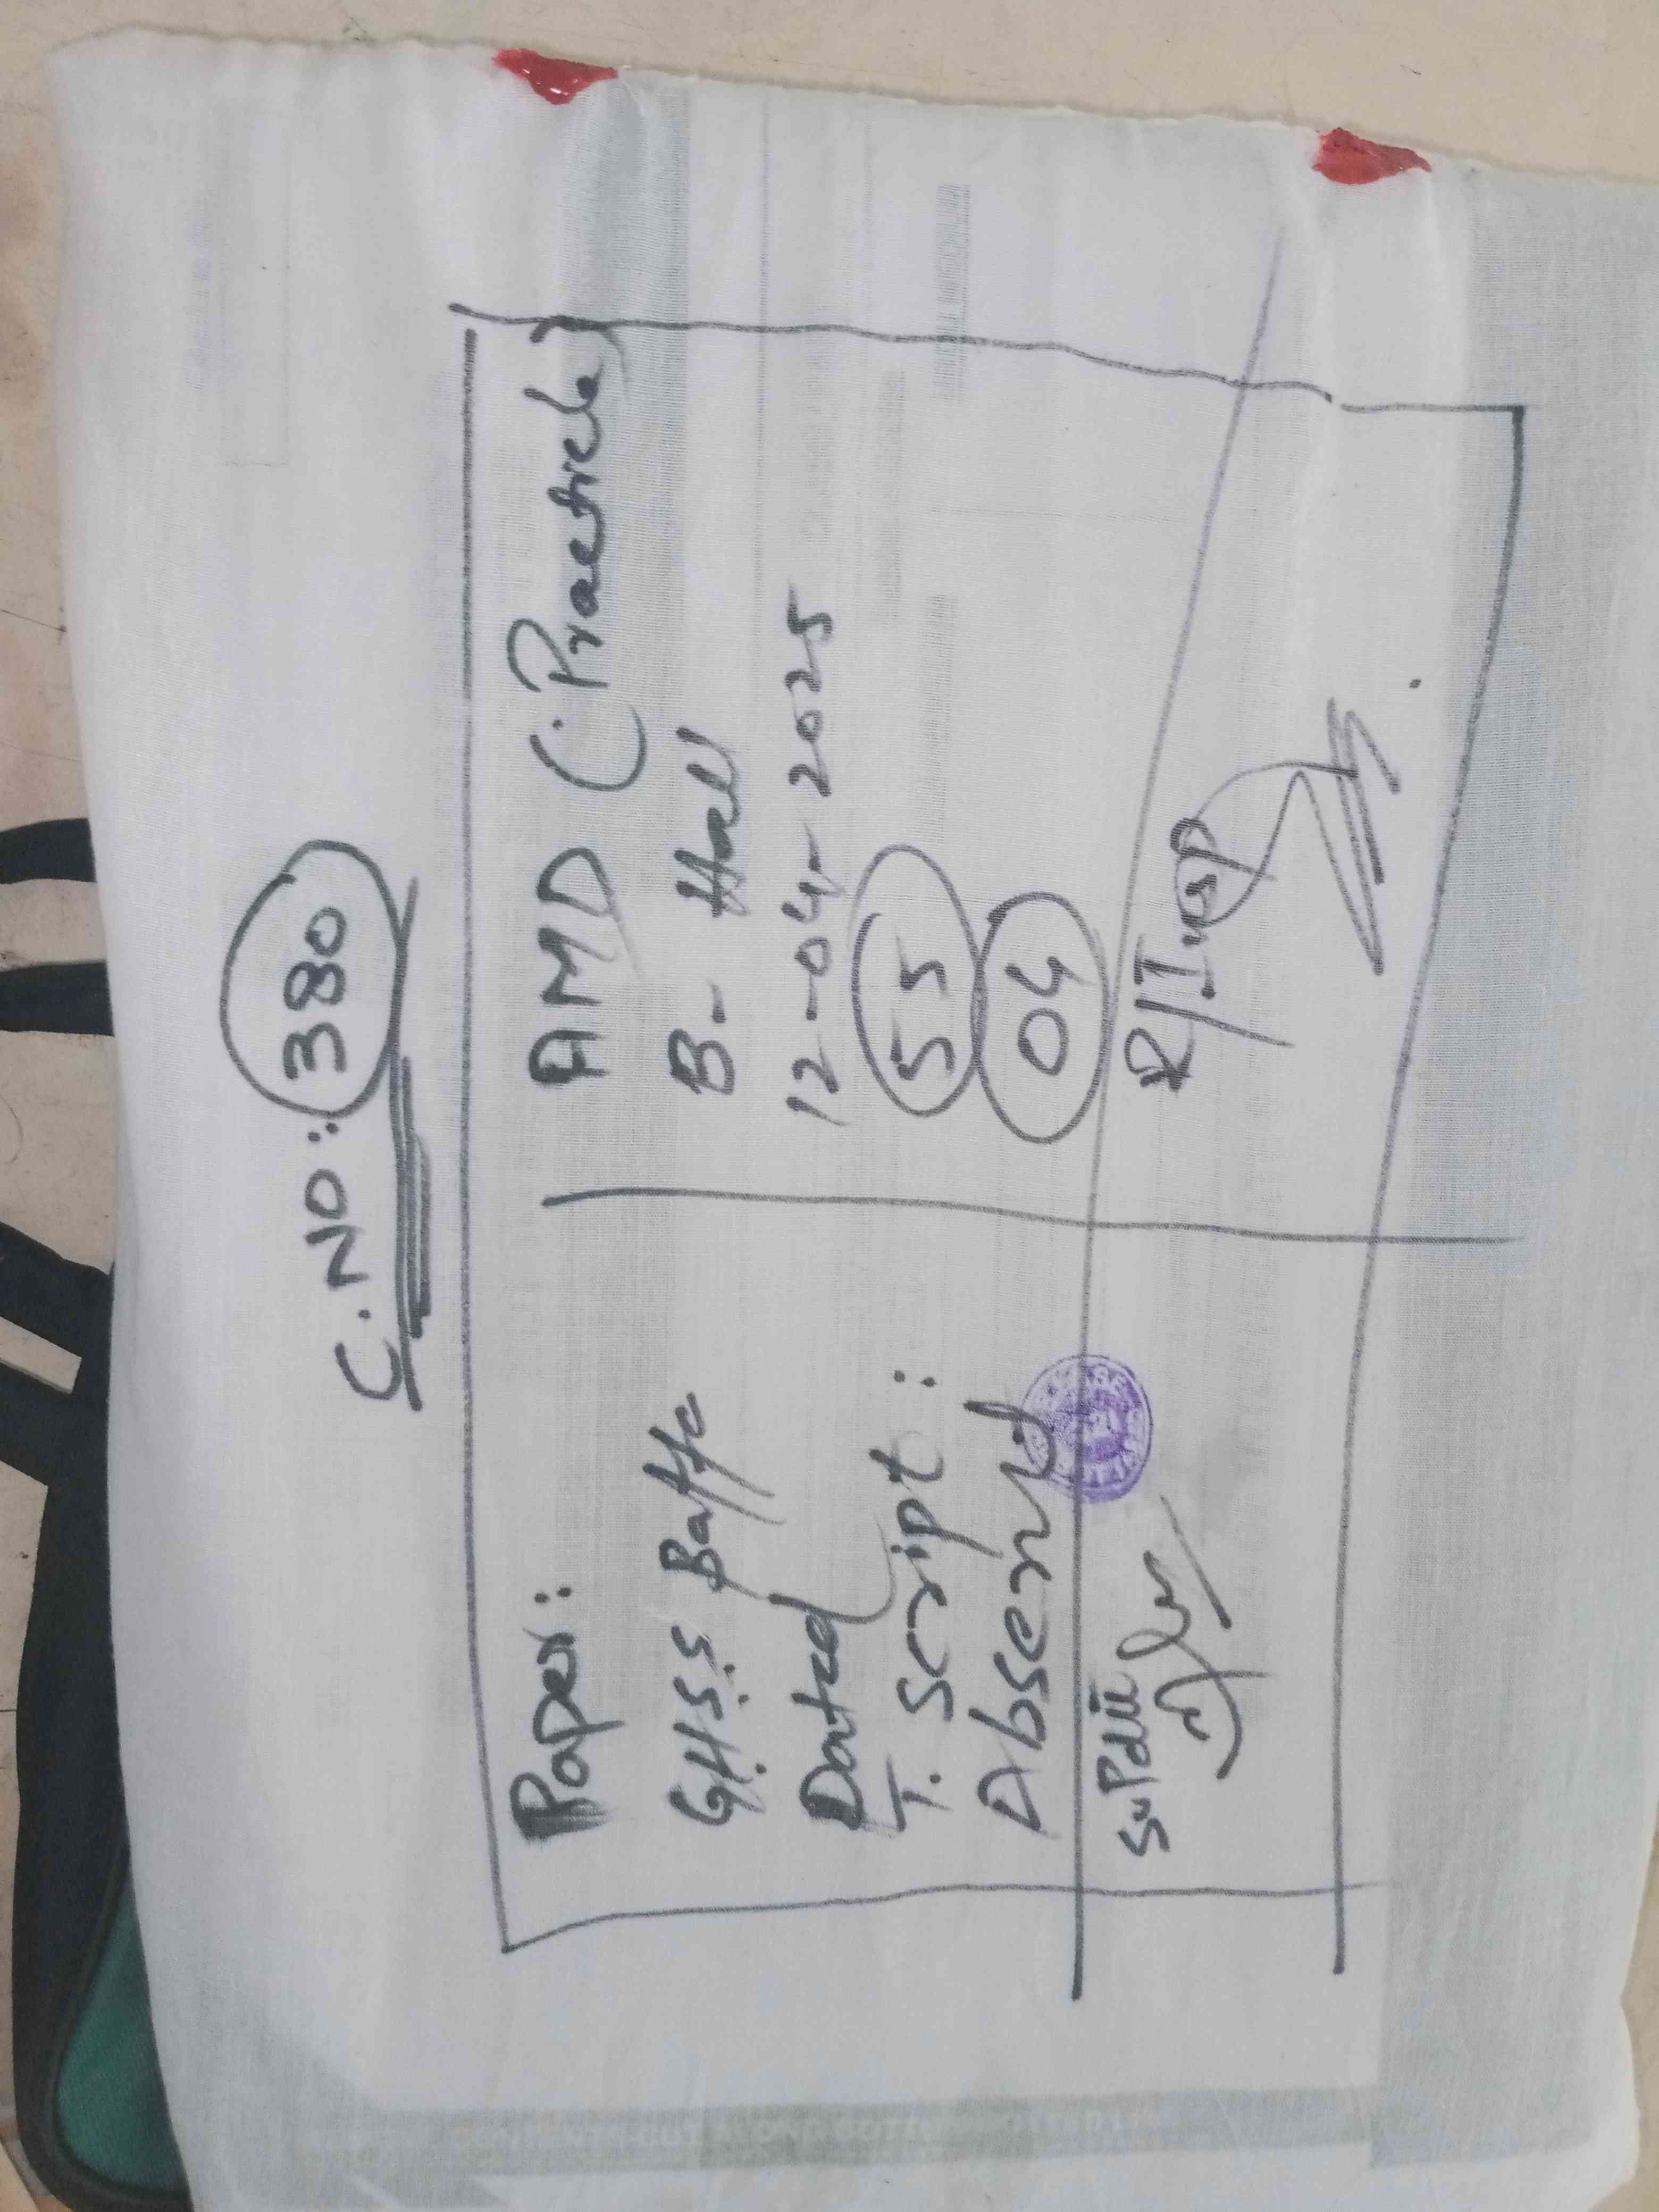 C. NO: 380
Paper: AMD (Practical)
G.H.S.S Baffa B- Hall
Dated 12-04-2025
T. Script: 55
Absent 04
Supdtt R/Insp